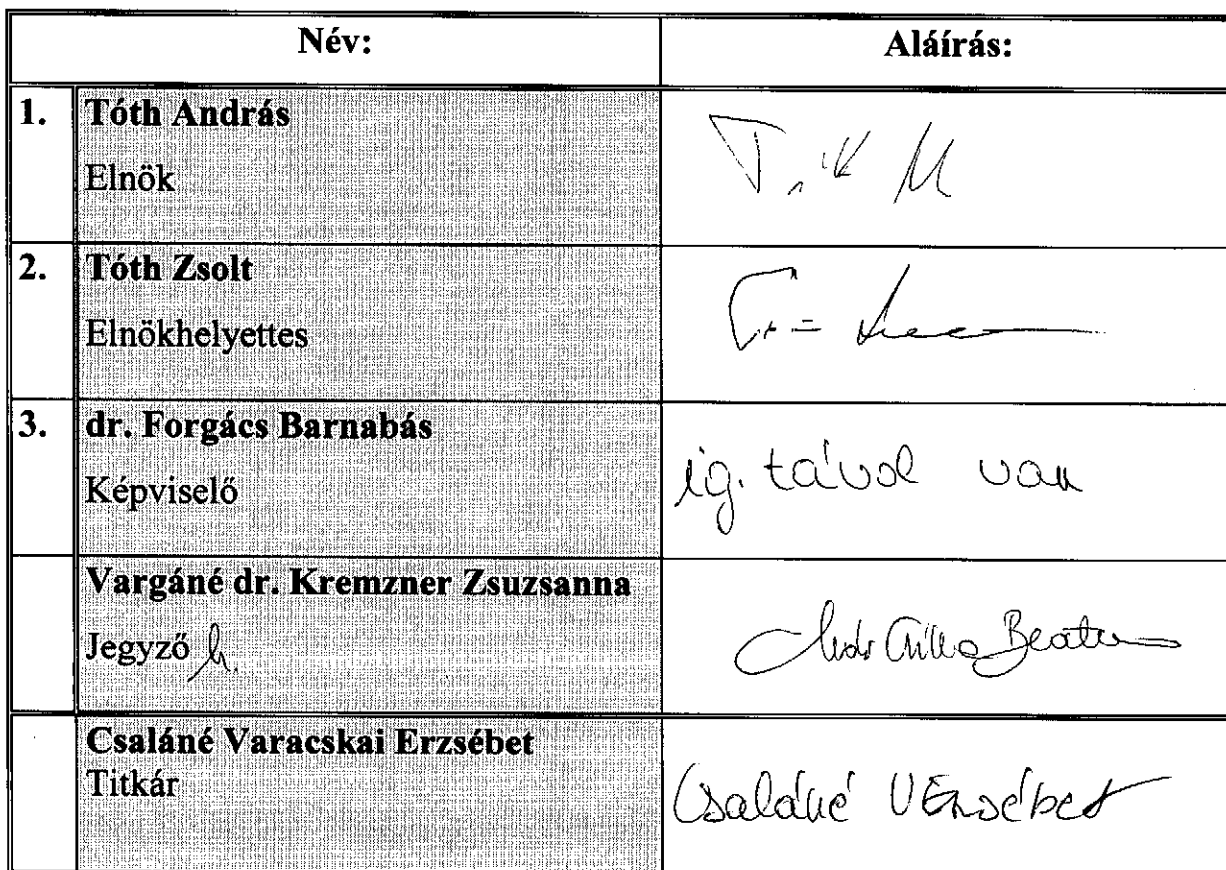 Név: Aláírás:
1. Tóth András
Elnök
2. Tóth Zsolt
Elnökhelyettes
3. dr. Forgács Barnabás
Képviselő
ig. távol van
Vargáné dr. Kremzner Zsuzsanna
Jegyző h.
Beáta
Csaláné Varacskai Erzsébet
Titkár
Csaláné V Erzsébet